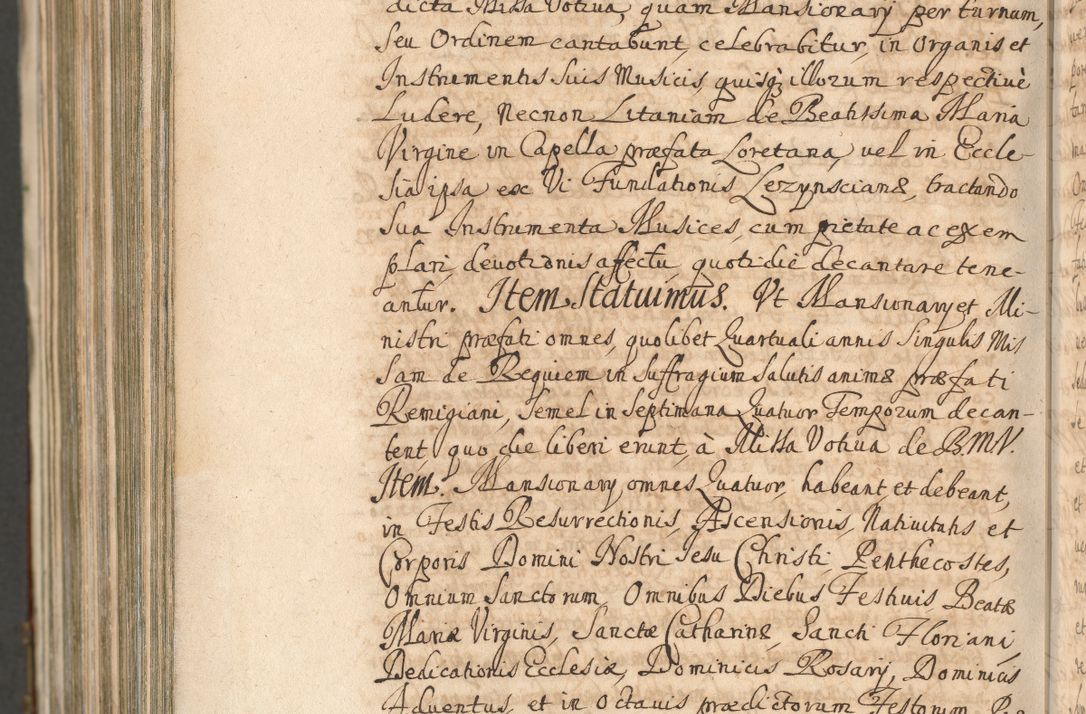 dicta Missa Votiva, quam Mansionarij per turnum,
seu Ordinem cantabunt, celebrabitur, in Organis et
Instrumentis suis Musicis, quisq; illorum respectivè
Ludere, Necnon Litaniam de Beatissima Maria
Virgine in Capella præfata Loretana, vel in Eccle-
sia ipsa ex Vi Fundationis Lezynscianæ, tractando
sua Instrumenta Musices, cum pietate ac exem
plari, devotionis affectu, quotidie decantare tene-
antur. Item Statuimus. Vt Mansionarij et Mi-
nistri præfati omnes, quolibet Quartuali annis singulis Mis
sam de Requiem in suffragium salutis animæ præfati
Remigiani, semel in septimana Quatuor Temporum decan-
tent, quo die liberi erunt, à Missa Votiva de B.M.V.
Item. Mansionarij omnes Quatuor, habeant et debeant,
in Festis Resurrectionis, Ascensionis, Nativitatis et
Corporis Domini Nostri Jesu Christi, Penthecostes,
Omnium Sanctorum, Omnibus Diebus Festivis, Beatæ
Mariæ Virginis, Sanctæ Catharinæ, Sancti Floriani,
Dedicationis Ecclesiæ, Dominicis Rosarij, Dominicis
Adventus, et in octavis prædictorum Festorum,